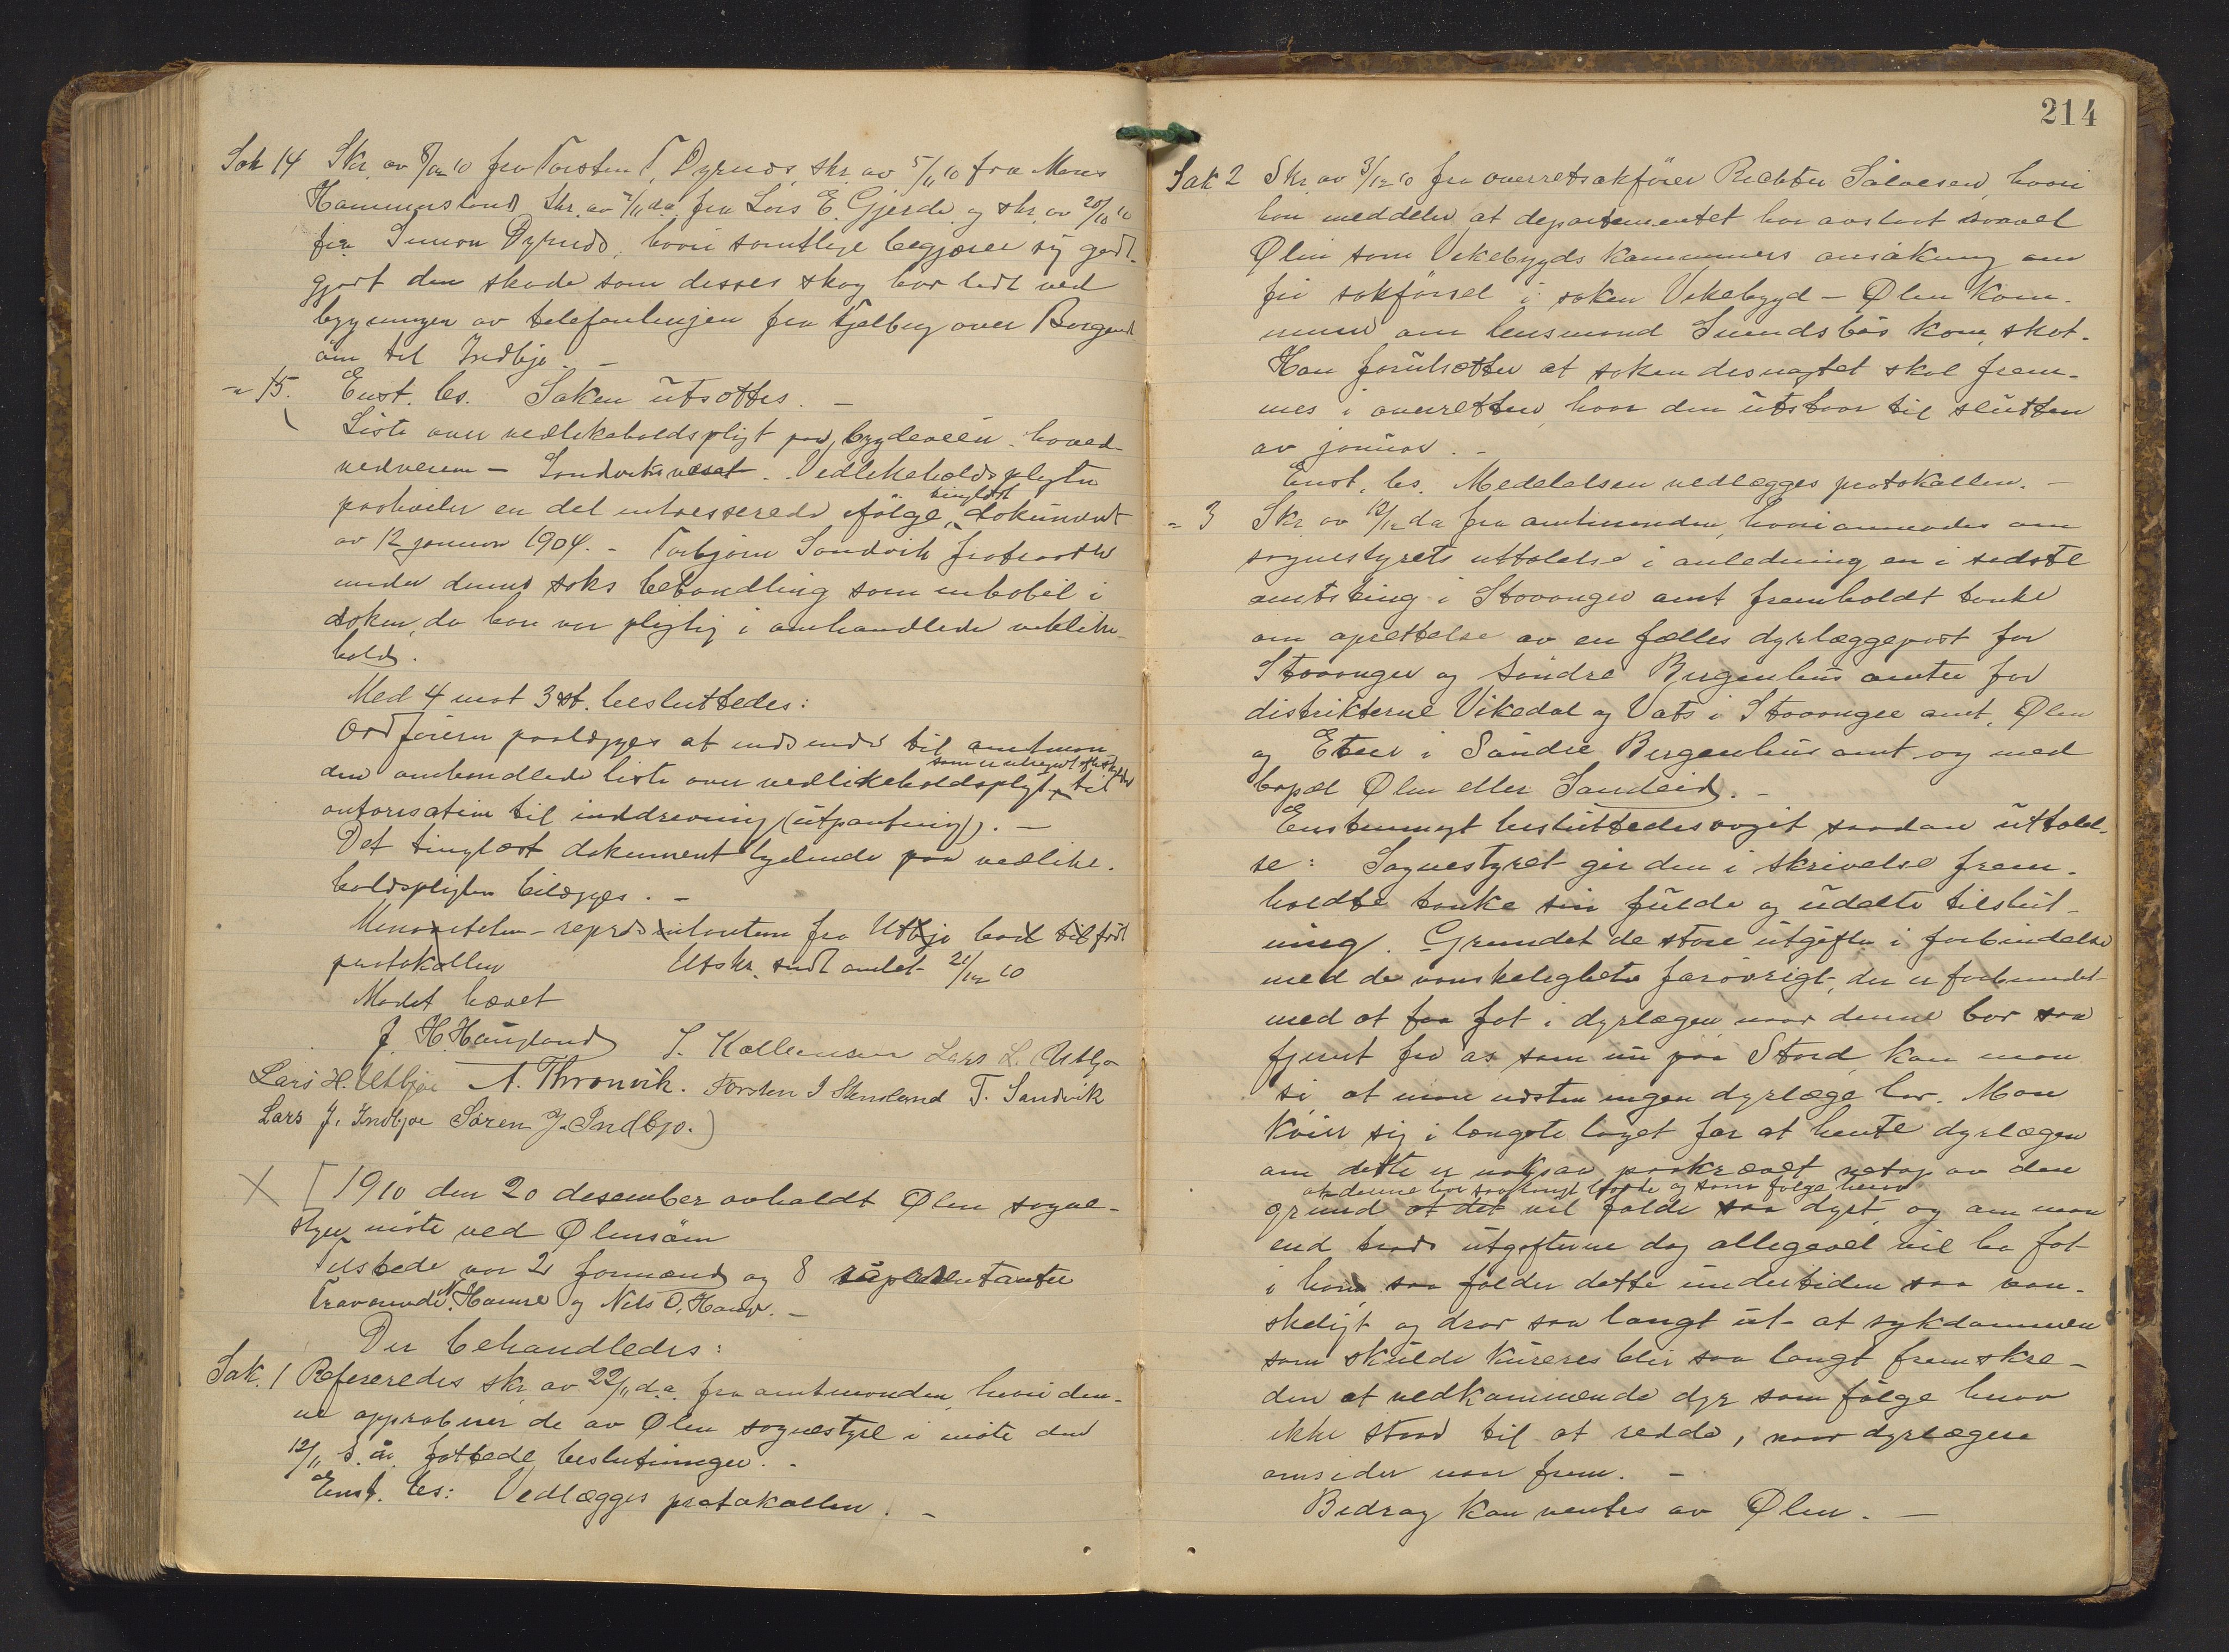 Sak 14 Skr. av 8/12 10 fra Torsten T. Dyrnes, skr. av 5/11 10 fra Mons
Hammersland skr. av 7/11 d.a. fra Lars E. Gjerde og skr. av 20/11 10
fra Simon Dyrnes, hvori samtlige begjærer sig godt-
gjort den skade som desses skog har lidt ved
bygningen av telefonlinjen fra Fjelberg over Borgund-
øin til Indbjo. –
Enst. bes. Saken utsættes. –
" 15. Liste over vedlikeholdspligt paa bygdeveien hoved-
veien – Sandviksvaset. Vedlikeholdspligten
paahviler en del interesserede ifølge tinglæst dokument
av 12 januar 1904. – Torbjørn Sandvik fratraadte
under denne saks behandling som inhabil i
saken, da han var pligtig i omhandlede vedlike-
hold.
Med 4 mot 3 st. besluttedes:
Ordføreren paalægges at indsende til amtman-
den omhandlede liste over vedlikeholdspligt, som er utregnet efter skylden til
autorisation til inddrivning (utpantning). –
Det tinglæst dokument lydende paa vedlike-
holdspligten bilægges. –
Minoriteten – repræsentanten fra Utbjo bad tilført
protokollen Utskr. sendt amtet 21/12 10
Mødet hævet
J. H. Haugland S. Kallevaag Lars L. Utbjo
Lars H. Utbjoe A. Thronvik. Torsten I Stensland T. Sandvik
Lars J. Indbjoe Søren J. Indbjo.
X [1910 den 20 desember avholdt Ølen sogne-
styre møte ved Ølensøen
Tilstede var 2 formænd og 8 repræsentanter
Fraværende N. Hamre og Nils O. Haugr. –
Der behandledes:
Sak. 1 Refereredes skr. av 22/11 d.a. fra amtmanden, hvori den-
ne approberer de av Ølen sognestyre i møte den
12/11 s. år. fattede beslutninger. –
Enst. bes: Vedlægges protokollen. –
214
Sak 2 Skr. av 3/12 10 fra overretsakfører Richter Salvesen, hvori
han meddeler at departementet har avslaat saavel
Ølen som Vikebygds kommuners ansøkning om
fri sakførsel i saken Vikebygd – Ølen kom-
mune om lensmand Svendsbøs kom. skat.
Han forutsætter at saken desuagtet skal frem-
mes i overretten, hvor den utstaar til slutten
av januar. –
Enst. bes. Meddelelsen vedlægges protokollen. –
" 3 Skr. av 10/12 d.a. fra amtmanden, hvori anmodes om
sognestyrets uttalelse i anledning en i sidste
amtsting i Stavanger amt fremholdt tanke
om oprettelse av en fælles dyrlægepost for
Stavanger og Søndre Bergenhus amter for
distrikterne Vikedal og Vats i Stavanger amt, Ølen
og Etne i Søndre Bergenhus amt og med
bopæl Ølen eller Sandeid. –
Enstemmigt besluttedes avgit saadan uttalel-
se: Sognestyret gir den i skrivelse frem-
holdte tanke sin fulde og udelte tilslut-
ning. Grundet de store utgifter i forbindelse
med de vanskeligheter forøvrigt, der er forbundet
med at faa fat i dyrlægen naar denne bor saa
fjernt fra os som nu paa Stord, kan man
si at man næsten ingen dyrlæge har. Man
kvier sig i længste laget for at hente dyrlægen
om dette er noksaa paakrævet netop av den
grund at denne bor saa langt borte og som følge herav at det vil falde saa dyrt, og om man
end trods utgifterne dog allikevel vil ha fat
i ham saa falder dette undertiden saa van-
skeligt og drar saa langt ut at sykdommen
som skulde kureres blir saa langt fremskre-
den at vedkommende dyr som følge herav
ikke staar til at redde, naar dyrlægen
omsider naar frem. –
Bidrag kan ventes av Ølen. –